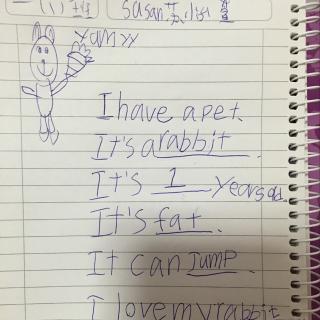 Susan
I have a pet.
It's a rabbit.
It's 1 years old.
It's fat.
It can Jump.
I love my rabbit